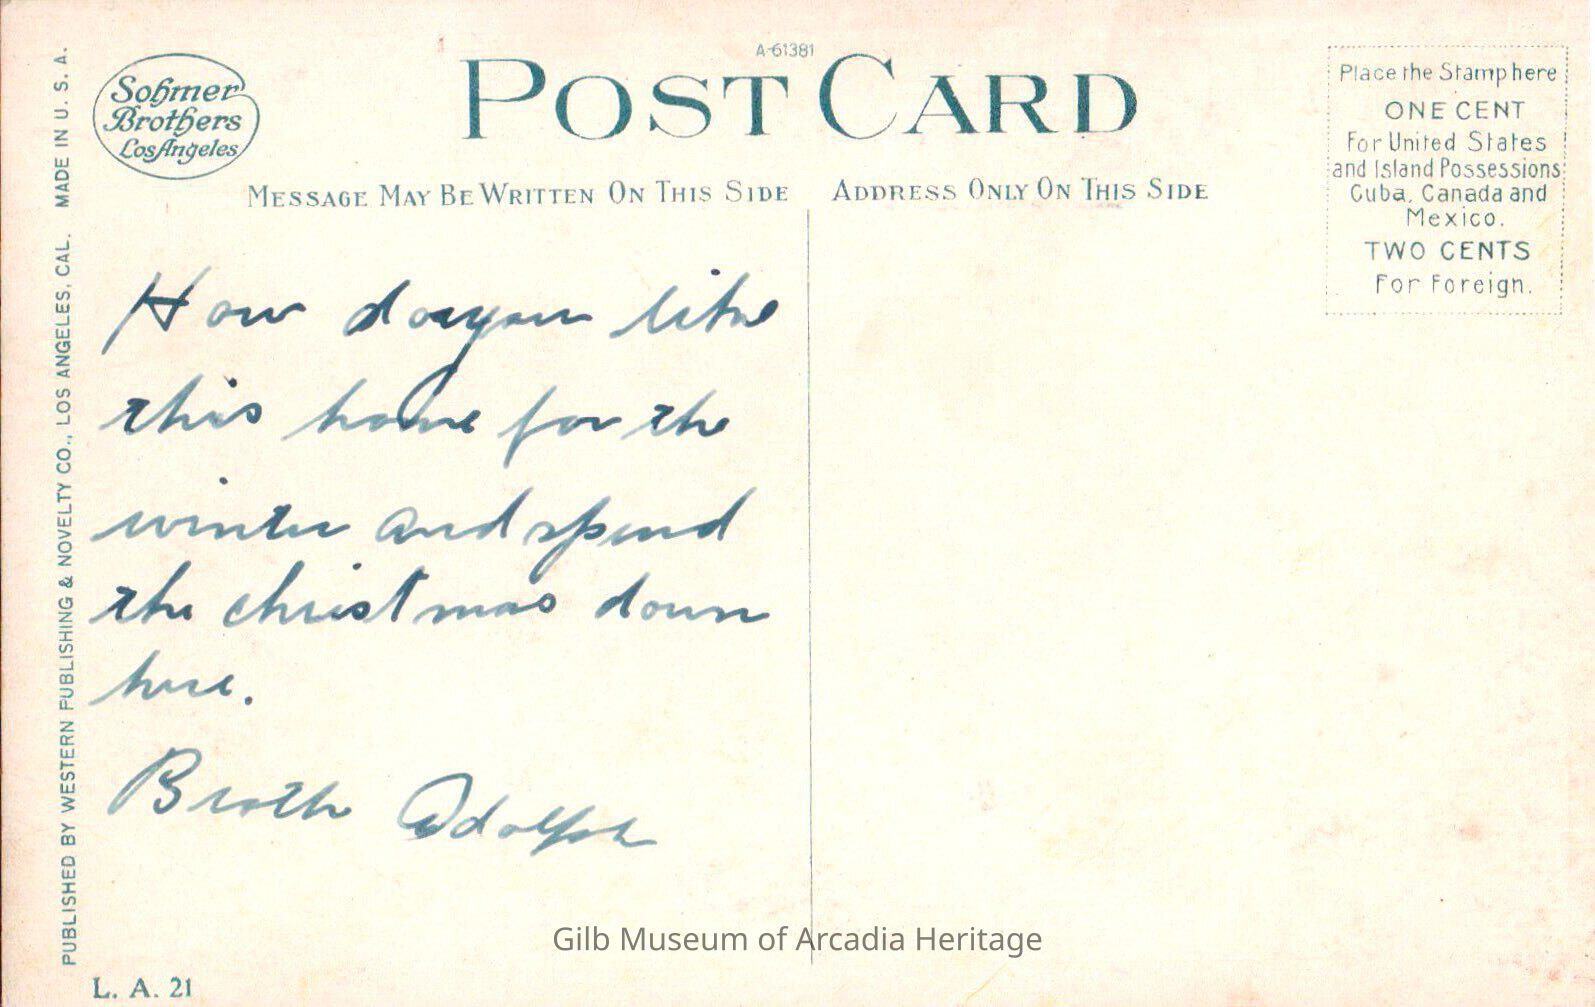 A-61381
POST CARD
Sohmer
Brothers
Los Angeles
MESSAGE MAY BE WRITTEN ON THIS SIDE
ADDRESS ONLY ON THIS SIDE
Place the Stamp here
ONE CENT
For United States
and Island Possessions
Cuba, Canada and
Mexico.
TWO CENTS
For Foreign.
PUBLISHED BY WESTERN PUBLISHING & NOVELTY CO., LOS ANGELES, CAL. MADE IN U. S. A.
How do you like
this home for the
winter and spend
the christmas down
here.
Broth Adolph
Gilb Museum of Arcadia Heritage
L. A. 21